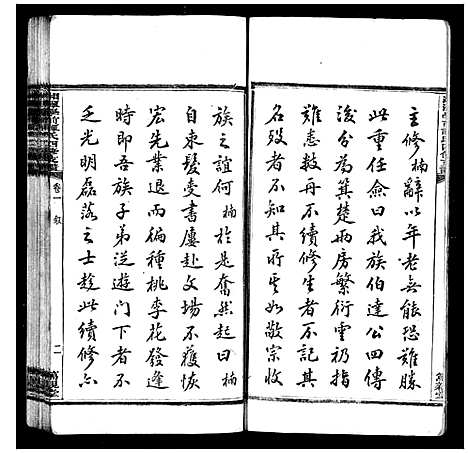 主修楠辭以年老無能恐難勝
此重任僉曰我族伯達公四傳
後分為箕楚兩房繁衍雲礽指
難悉數再不續修生者不記其
名歿者不知其所其如敬宗收
族之誼何楠於是奮然起曰楠
自束髮受書屢赴文場不獲恢
宏先業退而徧種桃李花發逢
時即吾族子弟從遊門下者不
乏光明磊落之士趁此續修亦
卷一
敘
二